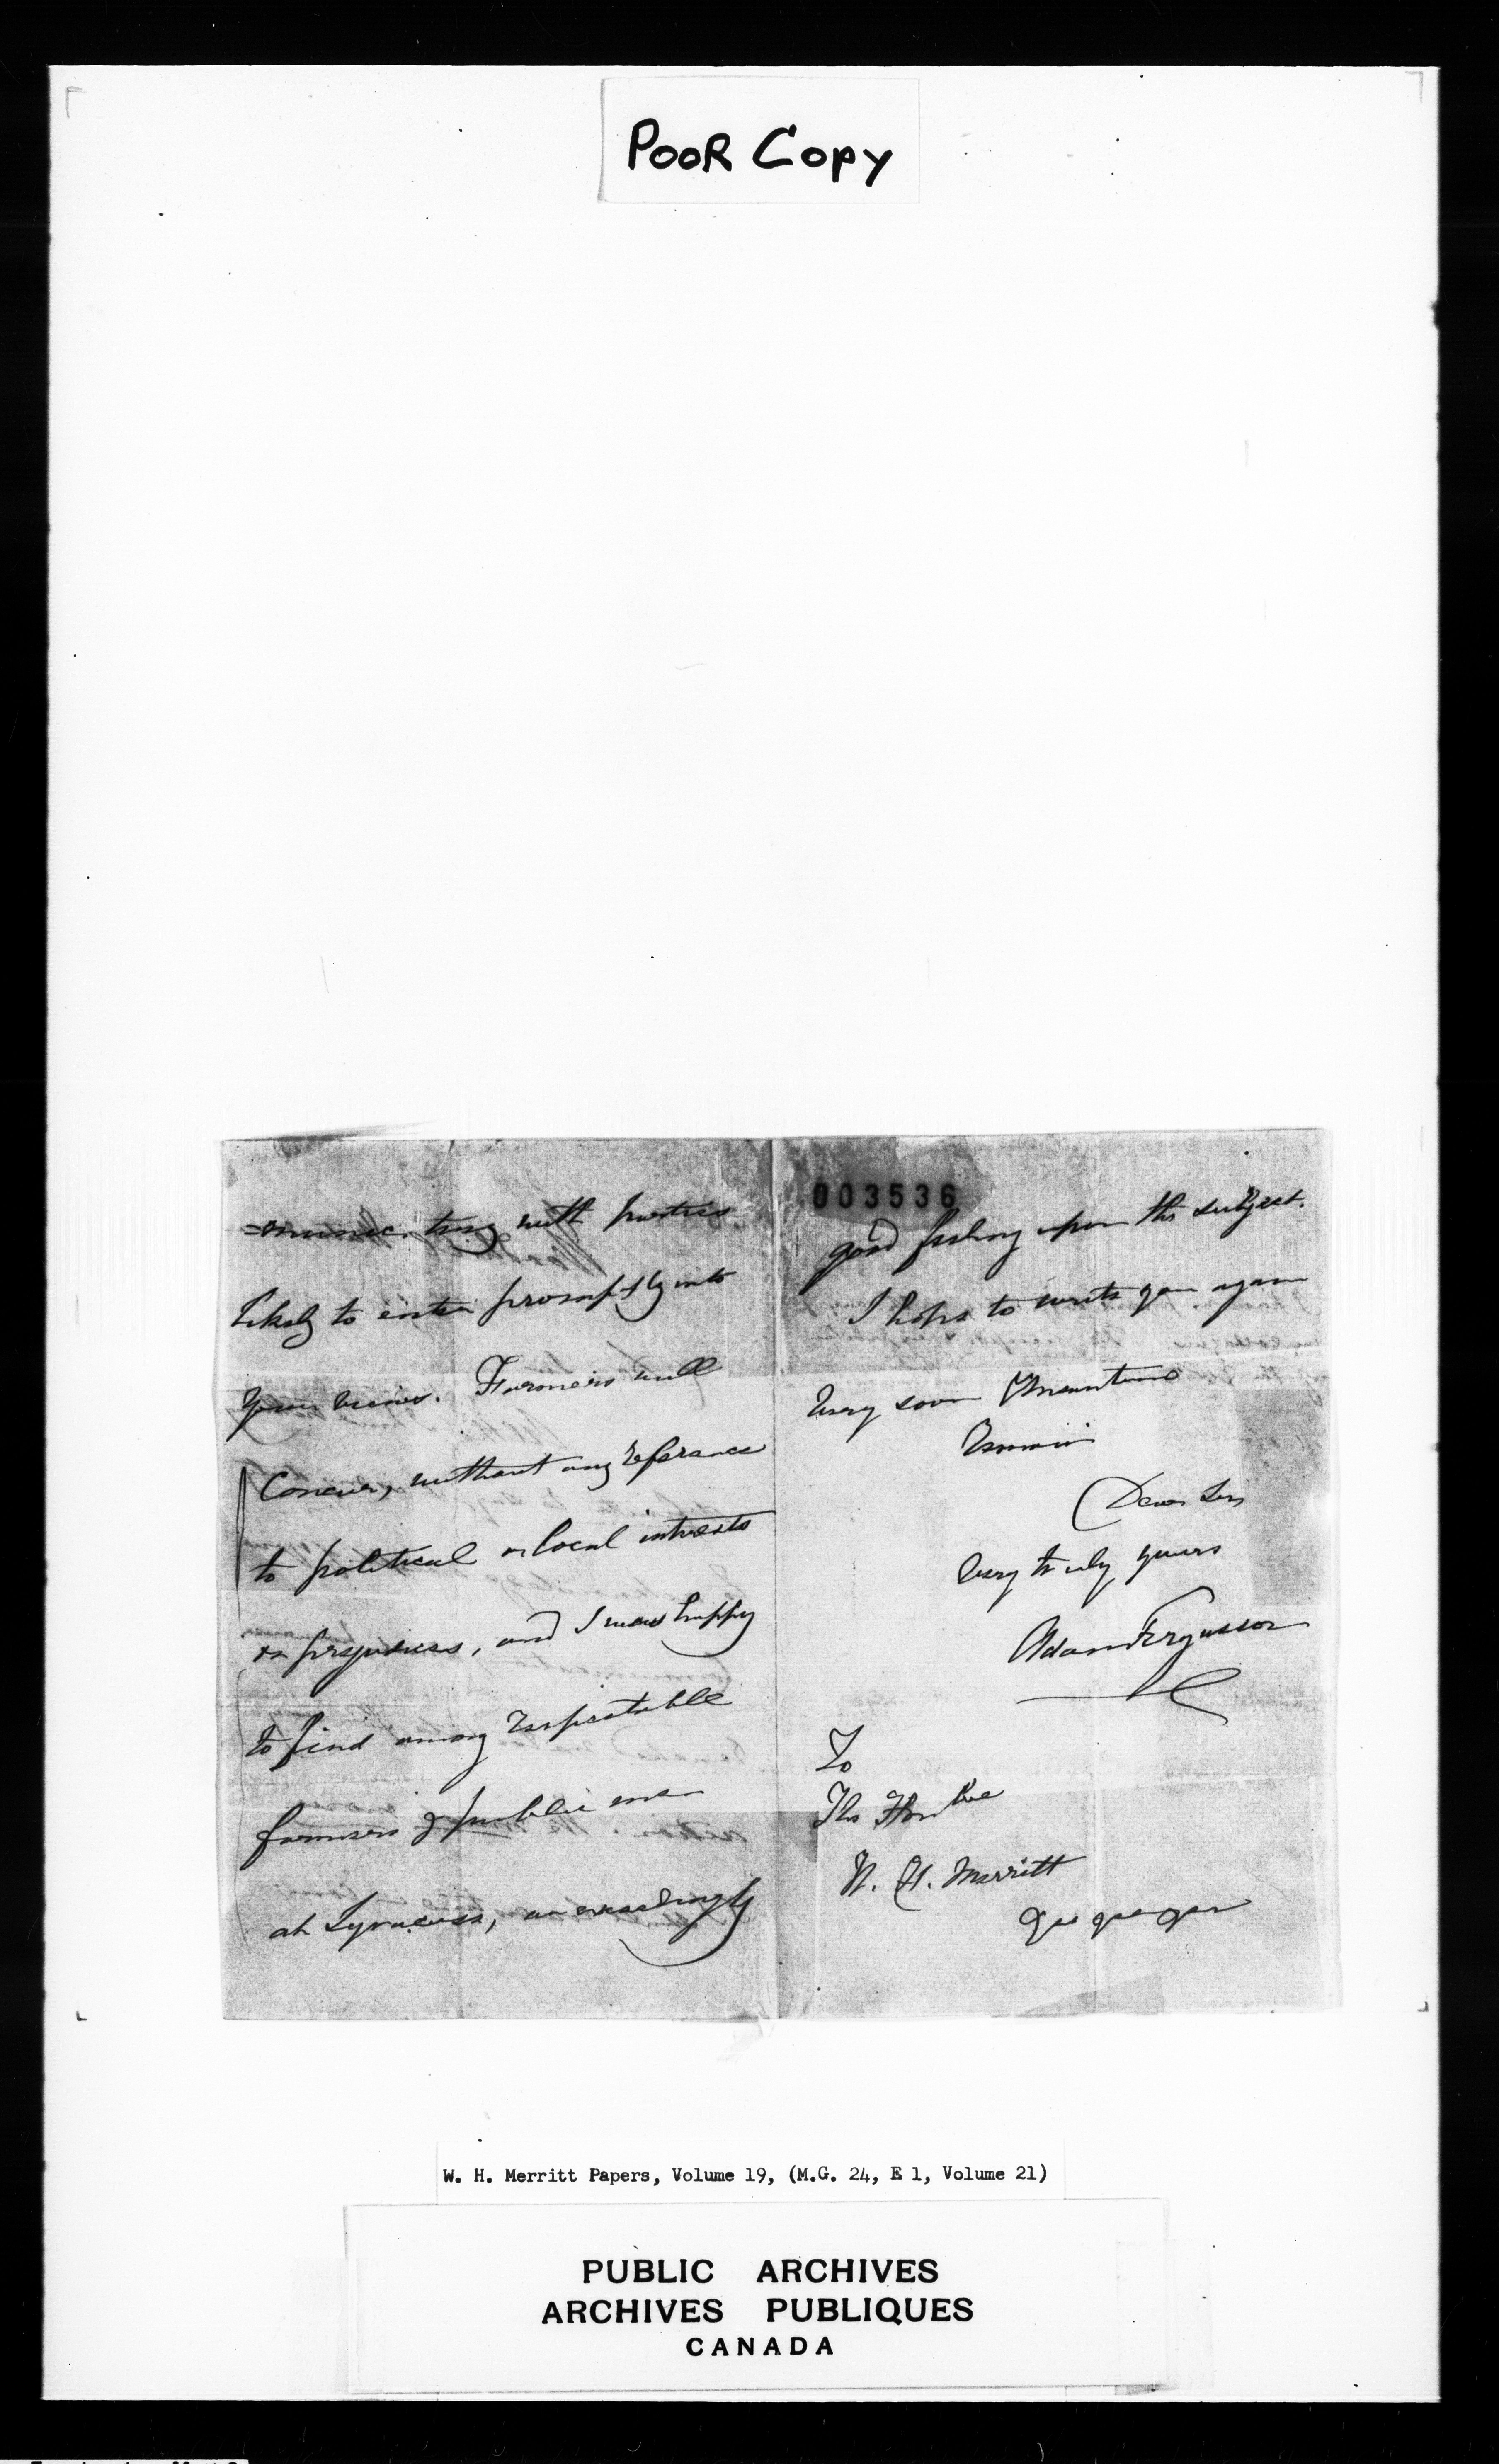 POOR COPY
=municating with parties
likely to enter promptly into
your views. Farmers will
Concur, without any reference
to political or local interests
or prejudices, and I was happy
to find among respectable
farmers & public men
at Syracuse, an exceedingly
003536
good feeling upon the subject.
I hope to write you again
very soon & meantime
Remain
Dear Sir
Very truly yours
Adam Fergusson
To
The Honble
W. H. Merritt
W. H. Merritt Papers, Volume 19, (M.G. 24, E 1, Volume 21)
PUBLIC ARCHIVES
ARCHIVES PUBLIQUES
CANADA